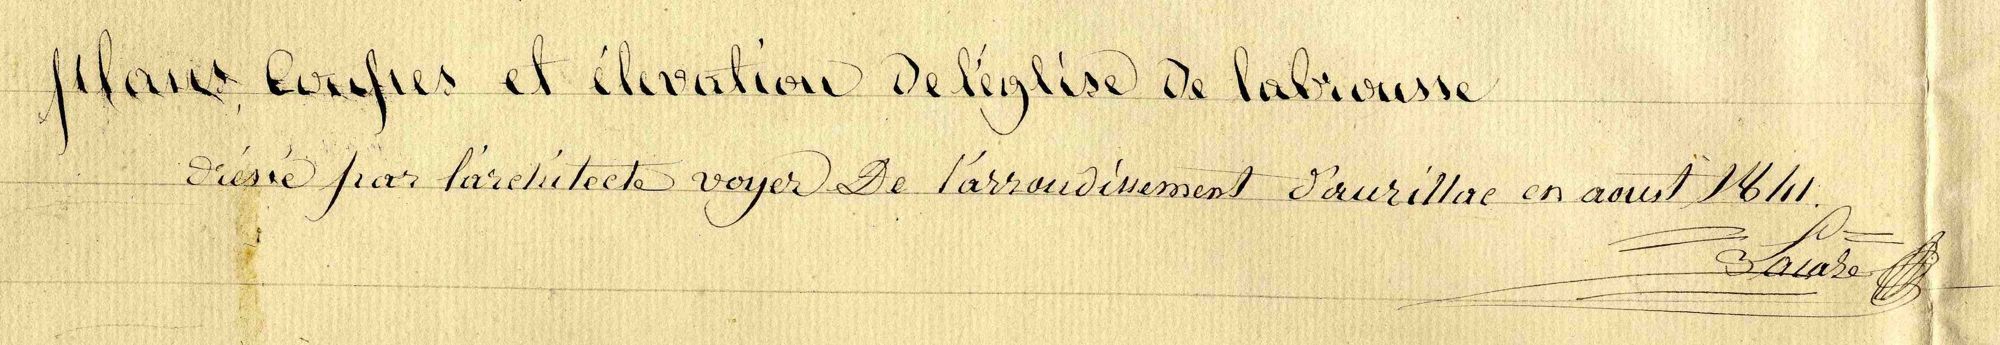 plans, Coupes et élévation de l'église de labrousse
dréssé par l'architecte voyer De l'arrondissement d'aurillac en aoust 1841.